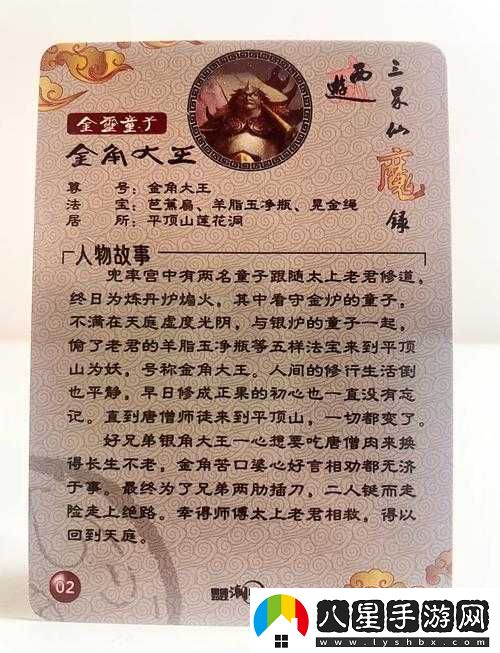 西遊
三界仙魔錄
金靈童子
金角大王
尊　号：金角大王
法　宝：芭蕉扇、羊脂玉净瓶、晃金绳
居　所：平顶山莲花洞
人物故事
兜率宫中有两名童子跟随太上老君修道，
终日为炼丹炉煽火，其中看守金炉的童子，
不满在天庭虚度光阴，与银炉的童子一起，
偷了老君的羊脂玉净瓶等五样法宝来到平顶
山为妖，号称金角大王。人间的修行生活倒
也平静，早日修成正果的初心也一直没有忘
记。直到唐僧师徒来到平顶山，一切都变了。
好兄弟银角大王一心想要吃唐僧肉来换
得长生不老，金角苦口婆心好言相劝都无济
于事。最终为了兄弟两肋插刀，二人铤而走
险走上绝路。幸得师傅太上老君相救，得以
回到天庭。
02
八星手游网
www.lyshbx.com